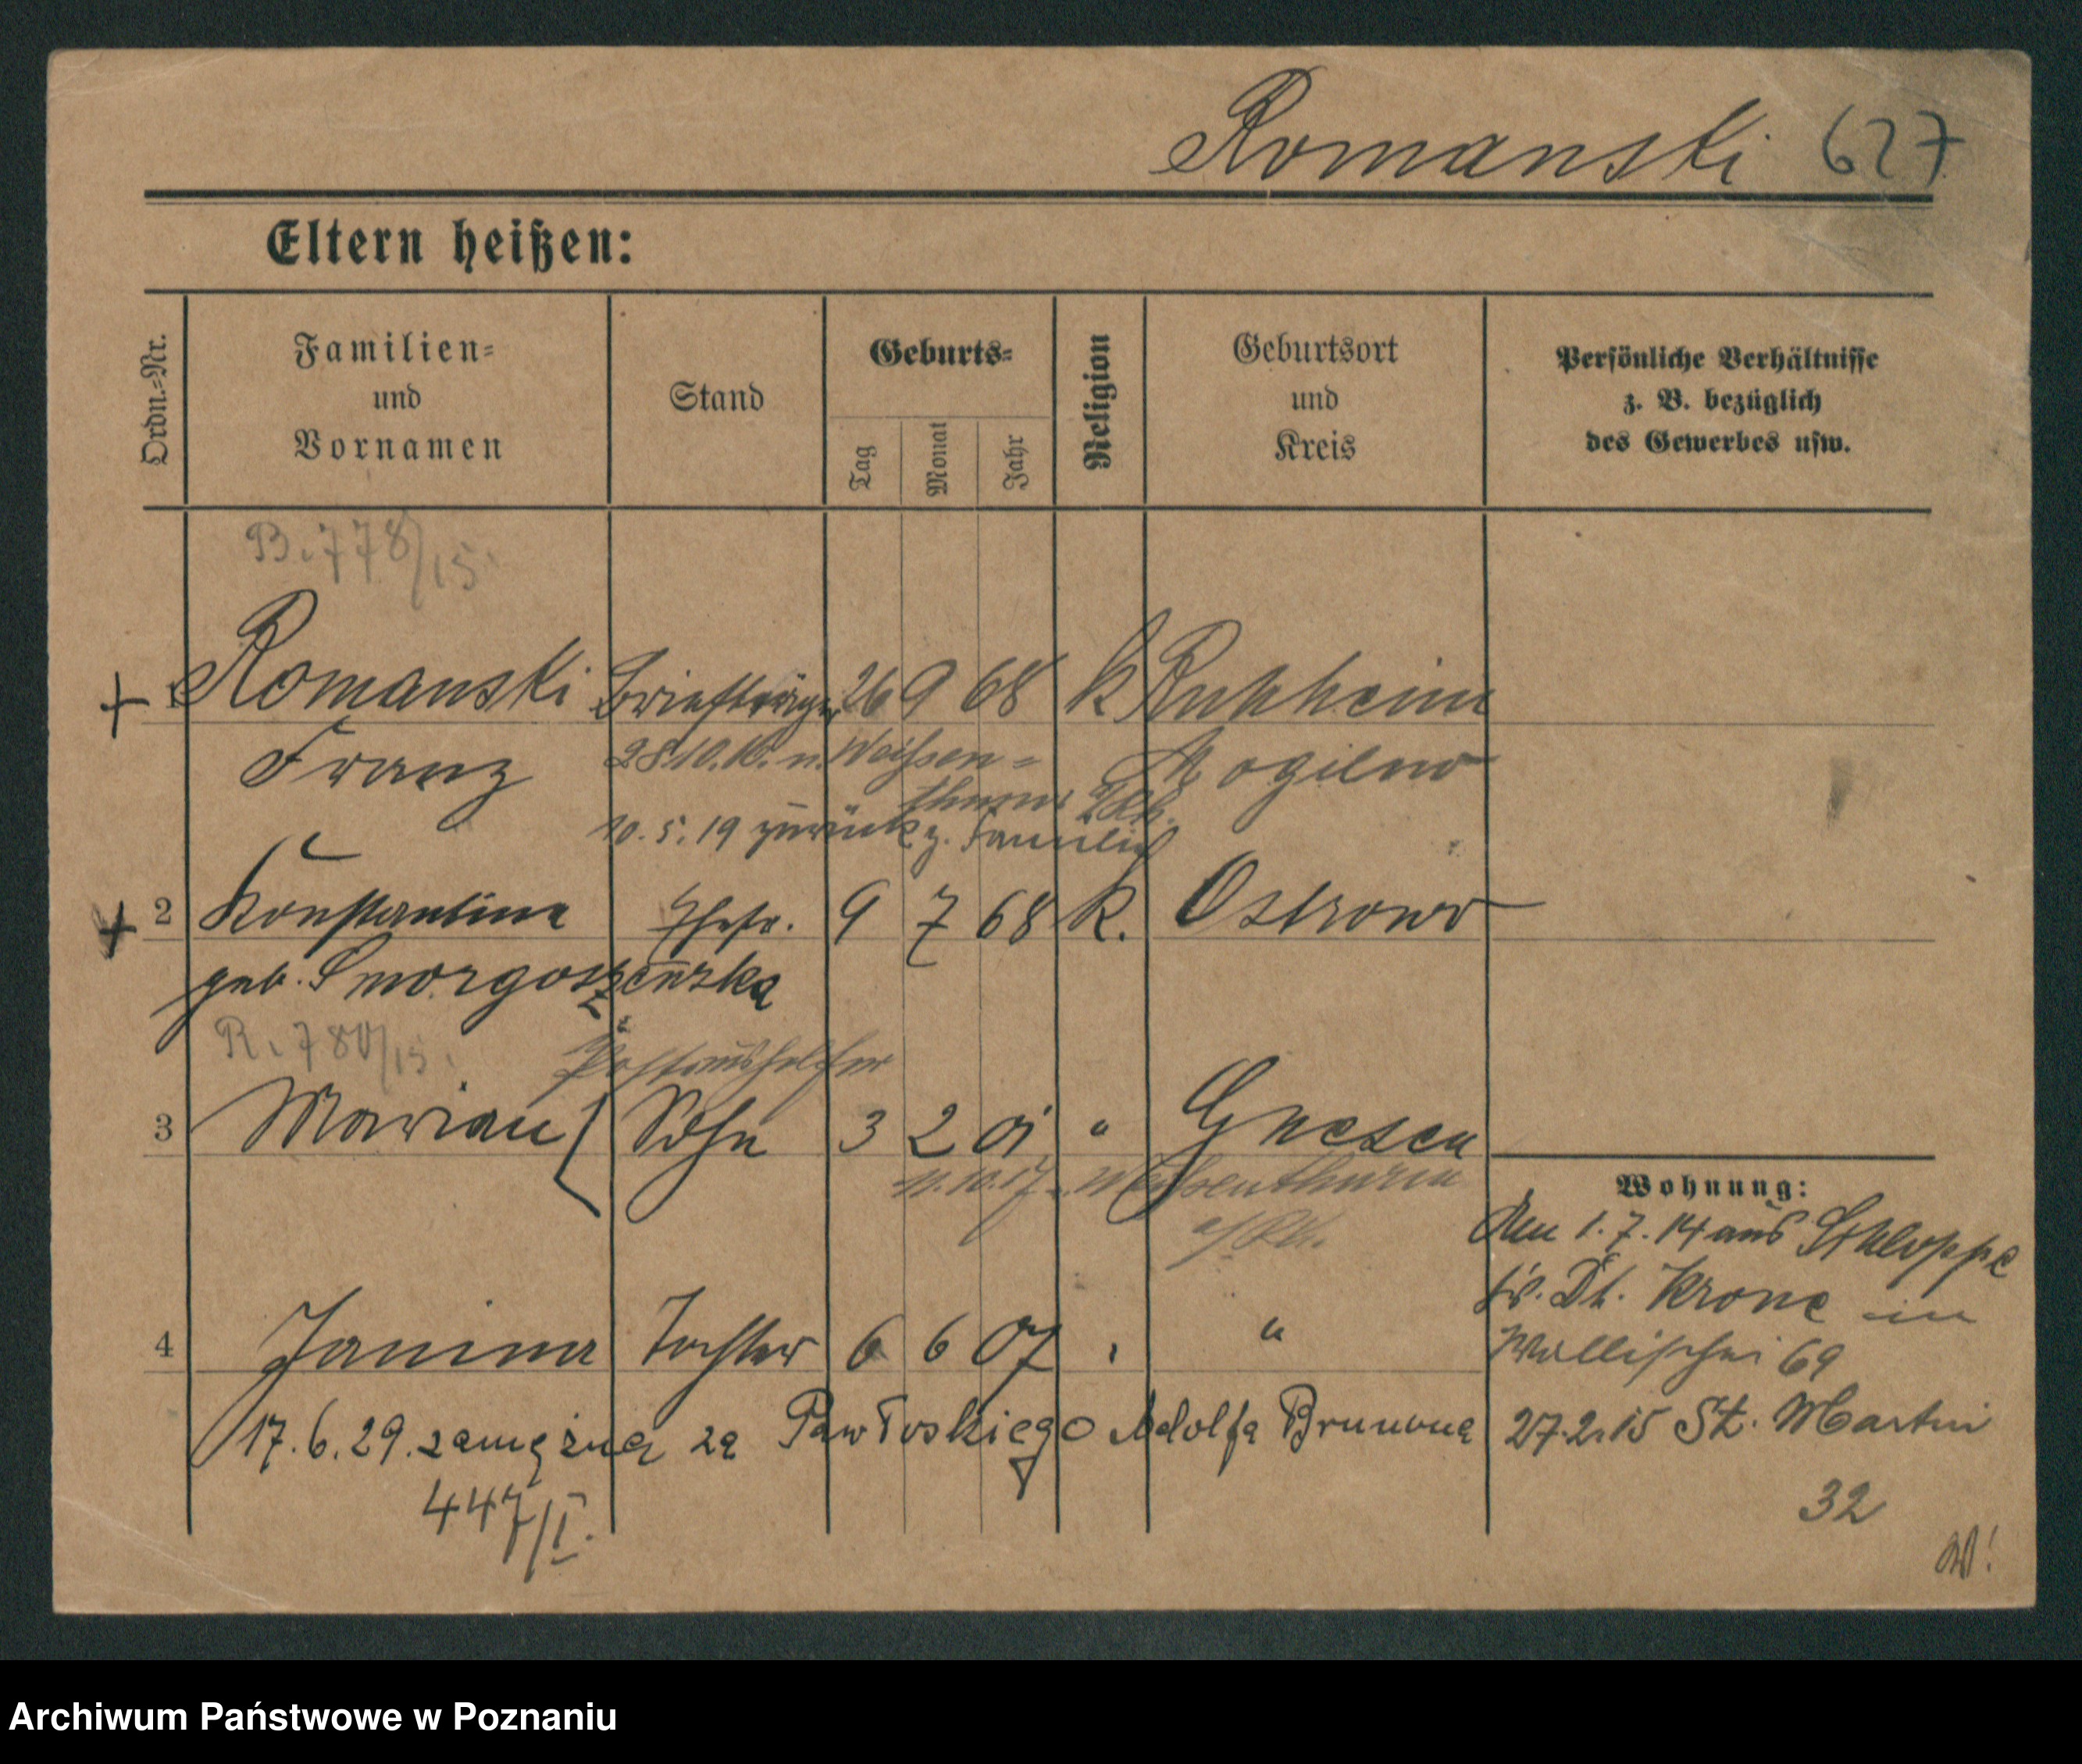 Romanski 627
Eltern heißen:
Ordn.-Nr.
Familien-
und
Vornamen
Stand
Geburts-
Tag
Monat
Jahr
Religion
Geburtsort
und
Kreis
Persönliche Verhältnisse
z. B. bezüglich
des Gewerbes usw.
B. 778/15.
1 Romanski Briefträger 26 9 68 k Ruhheim
Franz Mogilno
28.10.18. n. Weißen-
thurm a/Rh.
10.5.19 zurück z. Familie
2 Konstantina Ehefr. 9 7 68 k. Ostrowo
geb. Smorgoszewska
R. 780/15.
Postaushelfer
3 Marian Sohn 3 2 01 " Gnesen
11.10.17 n. Weißenthurm
a/Rh.
4 Janina Tochter 6 6 07 " "
17.6.29. zamężna za Pawłoskiego Adolfa Brunona
447/I.
Wohnung:
den 1.7.14 aus Schloppe
Kr. Dt. Krone in
Wallischei 69
27.2.15 St. Martin
32
W!
Archiwum Państwowe w Poznaniu